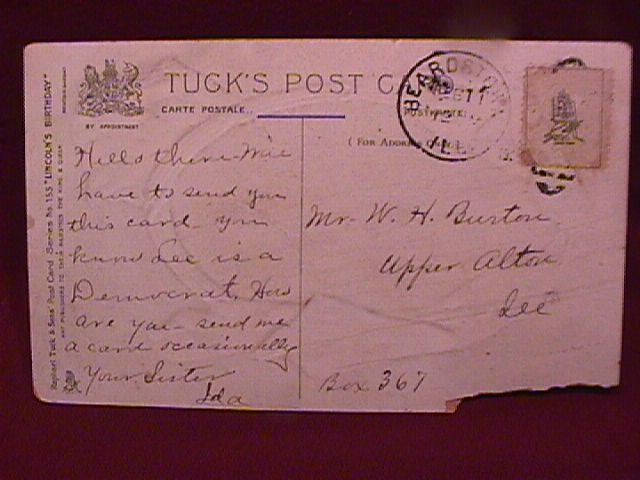 TUCK'S POST
CARTE POSTALE.
BY APPOINTMENT
BEARDSTOWN
11
ILL.
(FOR ADDRESS ONLY)
Raphael Tuck & Sons' Post Card Series No. 155 "LINCOLN'S BIRTHDAY"
ART PUBLISHERS TO THEIR MAJESTIES THE KING & QUEEN
Hello there
have to send you
this card you
know Lee is a
Democrat. How
are you - send me
a card occasionally
Your Sister
Ida
Mr. W. H. Burton
Upper Alton
Ill
Box 367